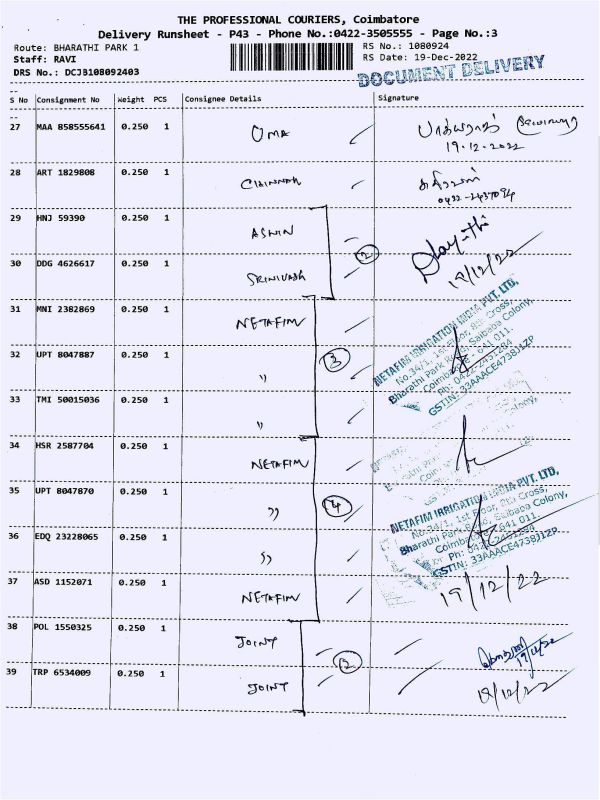 THE PROFESSIONAL COURIERS, Coimbatore
Delivery Runsheet - P43 - Phone No.:0422-3505555 - Page No.:3
Route: BHARATHI PARK 1
RS No.: 1080924
Staff: RAVI
RS Date: 19-Dec-2022
DRS No.: DCJB108092403
DOCUMENT DELIVERY
S No Consignment No Weight PCS Consignee Details Signature
27 MAA 858555641 0.250 1 UMA
19.12.2022
28 ART 1829808 0.250 1
0422-2437094
29 HNJ 59390 0.250 1 ASWIN
30 DDG 4626617 0.250 1 SRINIVASH
2
19/12/22
31 MNI 2382869 0.250 1 NETAFIM
32 UPT 8047887 0.250 1 "
3
33 TMI 50015036 0.250 1 "
NETAFIM IRRIGATION INDIA PVT. LTD,
No.34/1, 1st Floor, 8th Cross,
Bharathi Park Road, Saibaba Colony,
Coimbatore - 641 011.
GSTIN: 33AAACE4738J1ZP
34 HSR 2587704 0.250 1 NETAFIM
35 UPT 8047870 0.250 1 "
4
36 EDQ 23228065 0.250 1 "
37 ASD 1152071 0.250 1 NETAFIM
NETAFIM IRRIGATION INDIA PVT. LTD,
No.34/1, 1st Floor, 8th Cross,
Bharathi Park Road, Saibaba Colony,
Coimbatore - 641 011.
GSTIN: 33AAACE4738J1ZP
19/12/22
38 POL 1550325 0.250 1 JOINT
2
39 TRP 6534009 0.250 1 JOINT
19/12/22